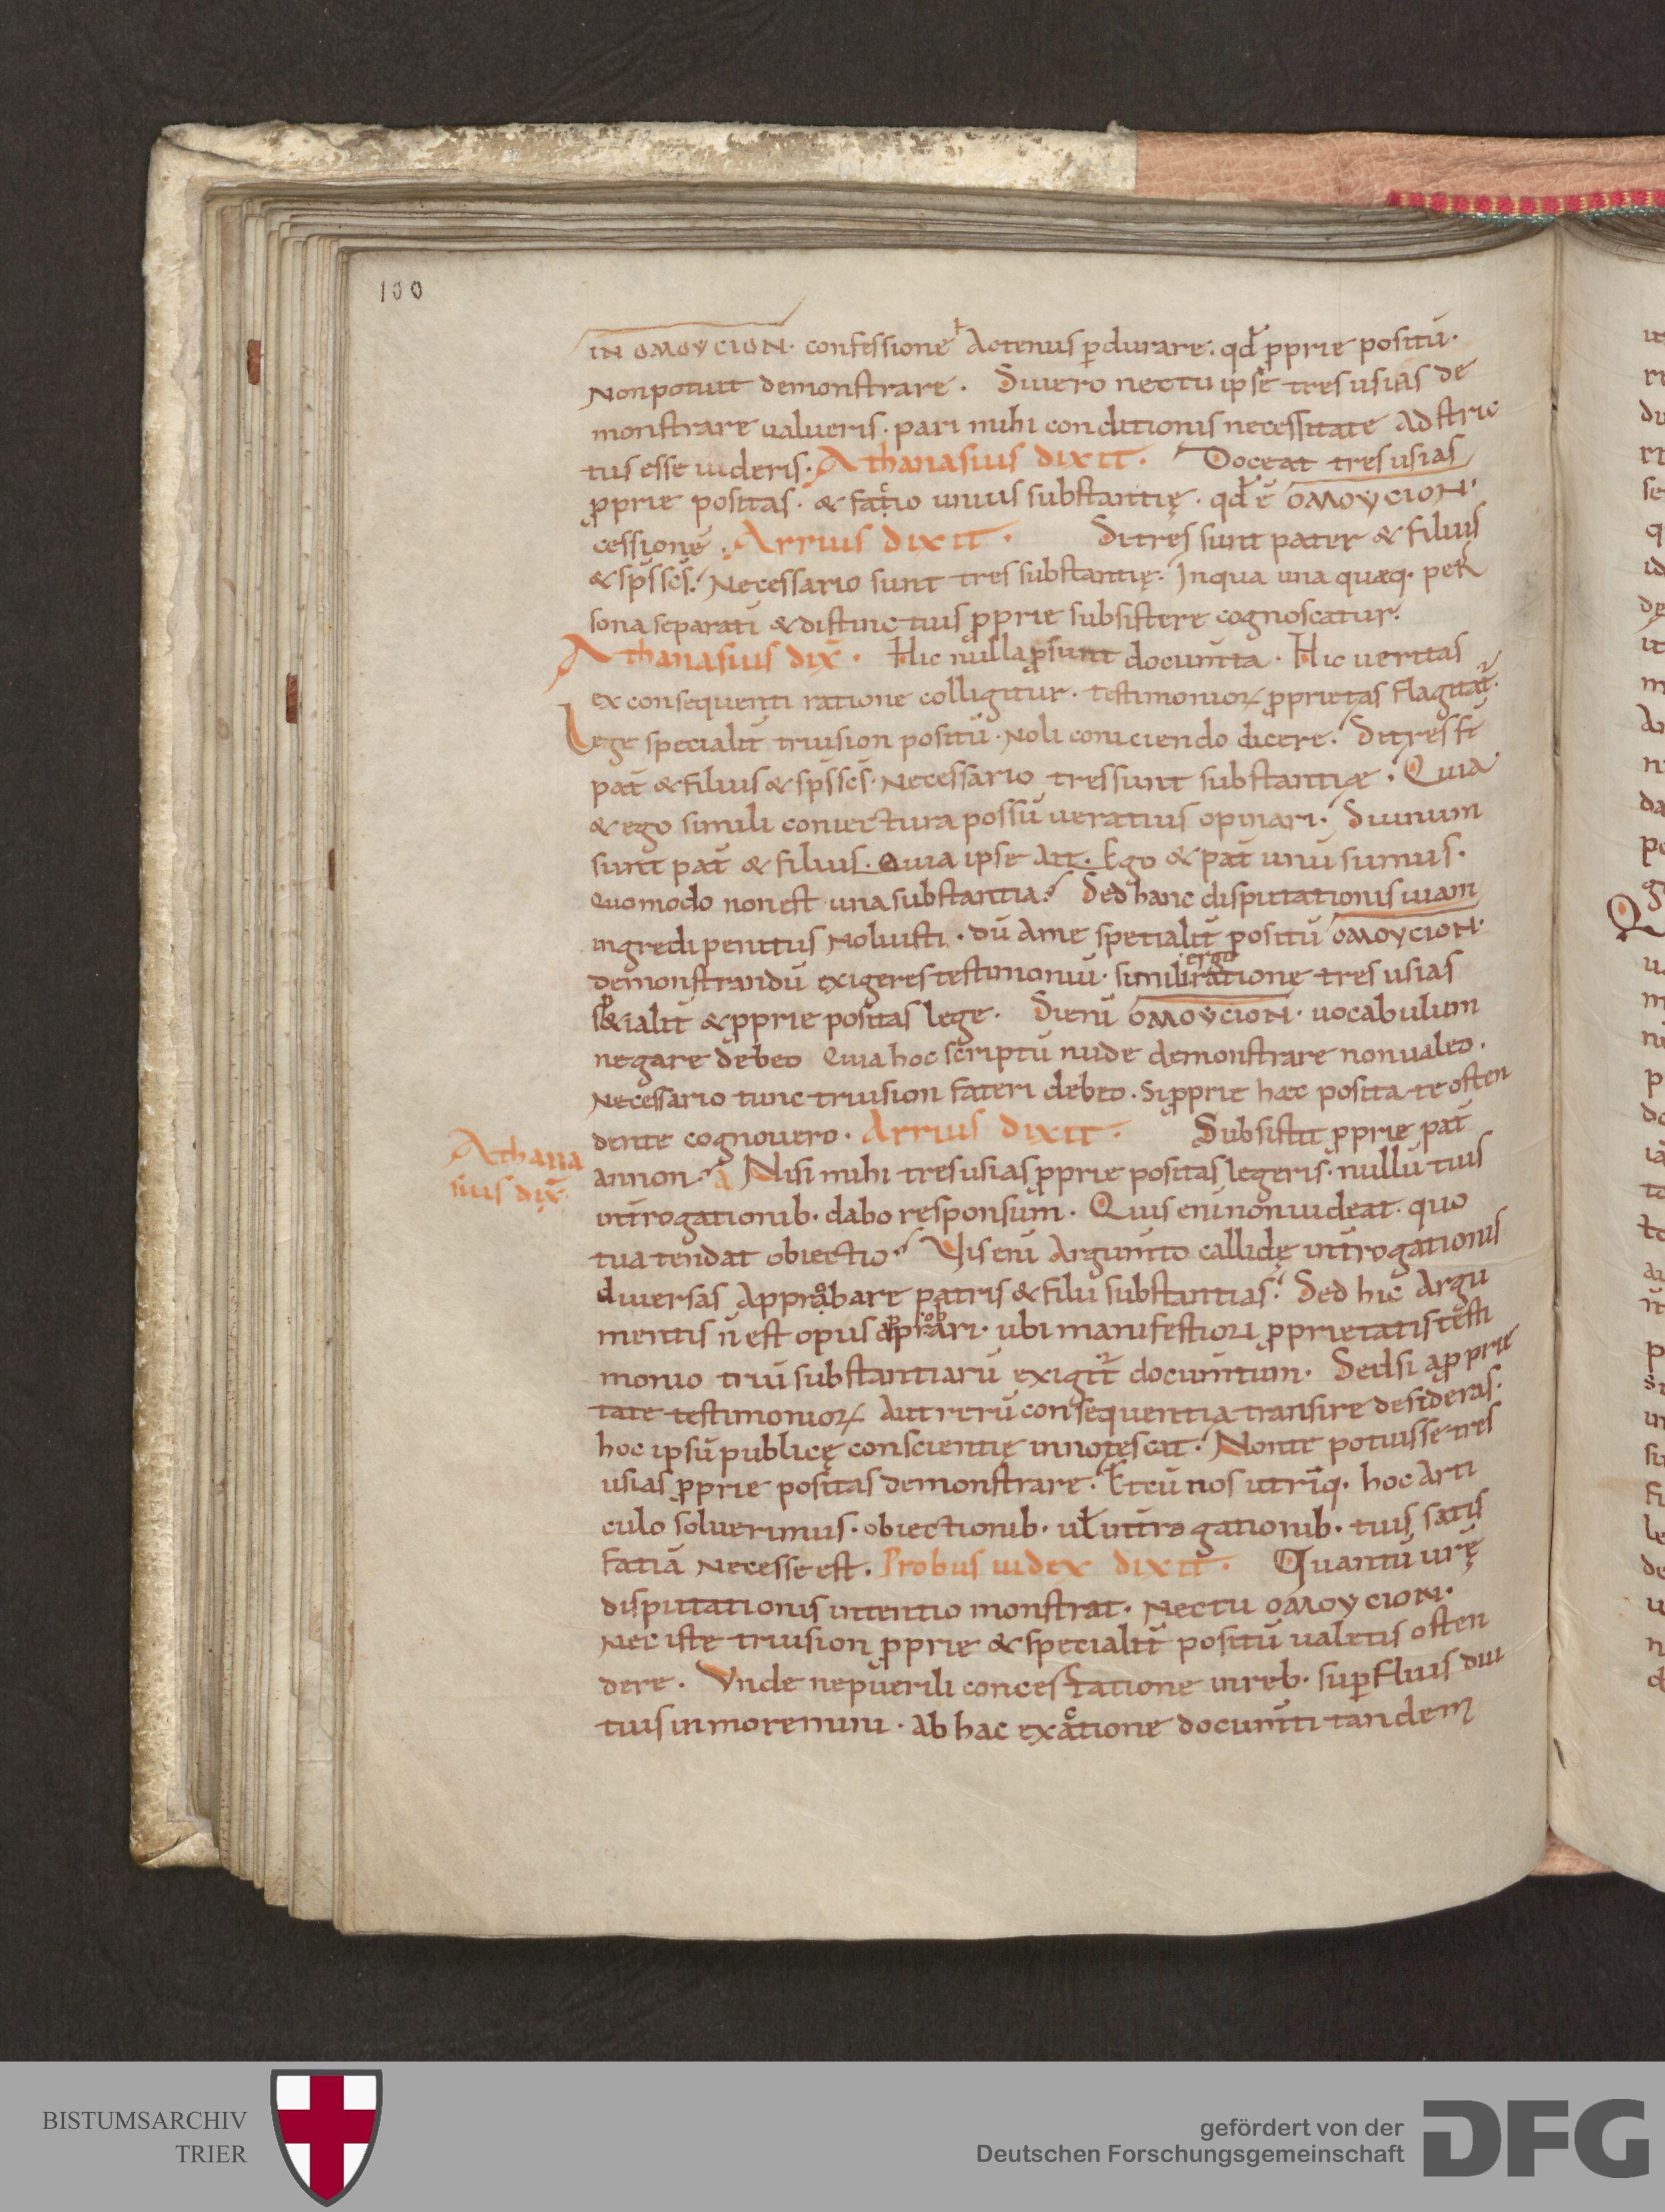 100
IN OMOYCION· confessione Actenus ꝑdurare. qđ ꝓprie positū·
Nonpotuit demonstrare. Siuero nectu ipse tres usias de
monstrare ualueris· pari mihi conditionis necessitate Adstric
tus esse uideris· Athanasius dixit. Doceat tres usias
ꝓprie positas· & fateor unius substantię· qđ ē OMOYCION·
cessione· Arrius dixit· Sitres sunt pater & filius
& sp̄s sc̄s. Necessario sunt tres substantię. Inqua una quæq· per
sona separatī & distinctius ꝓprie subsistere cognoscatur.
Athanasius dix̄· Hic nulla ꝓsunt documīta· Hic ueritas
ex consequenti ratione colligitur· testimonioꝝ ꝓprietas flagitat̄·
Lege specialit̄ triusion positū· Noli coniciendo dicere. Sitres st̄
pat̄ & filius & sp̄s sc̄s· Necessario tres sunt substantiæ. Quia
& ego simili coniectura possū ueratius opinari· Siunum
sunt pat̄ & filius. Quia ipse Ait. Ego & pat̄ unū sumus.
Quomodo non est una substantia. Sed hanc disputationis uiam
ingredi penitus Noluisti· dū Ame spetialit̄ positū OMOYCION·
demonstrandū exigeres testimoniū· simili ergo ratione tres usias
sp&ialit̄ & ꝓprie positas lege. Si enī OMOYCION· uocabulum
negare debeo Quia hoc scriptū nude demonstrare nonualeo.
Necessario tunc triusion fateri debeo. Si ꝓprie hæc posita te osten
dente cognouero· Arrius dixit· Subsistit ꝓprie pat̄
Athana
sius dix̄·
annon. Nisi mihi tres usias ꝓprie positas legeris· nullū tuis
int̄rogationib· dabo responsum· Quis enī non uideat· quo
tua tendat obiectio. Vis enī Argumīto callidę int̄rogationis
diuersas Approbare patris & filii substantias. Sed hic Argu
mentis n̄ est opus approbari· ubi manifestiori ꝓprietatis testi
monio triū substantiarū exigit̄ documītum· Sed si Aꝓprie
tate testimonioꝝ Aut rerū consequentia transire desideras·
hoc ipsū publicę conscientię innotescat. Nonte potuisse tres
usias ꝓprie positas demonstrare. Et cū nos utriq· hoc Arti
culo soluerimus· obiectionib· ul̄ int̄rogationib· tuis satis
fatiā Necesse est. Probus iudex dixit. Quantū ur̄ę
disputationis intentio monstrat· Nectu OMOYCION·
Nec iste triusion ꝓprie & specialit̄ positū ualetis osten
dere. Vnde nepuerili concestatione inreb· suꝑfluis diu
tius inmoremini· Ab hac exactione documīti tandem
BISTUMSARCHIV
TRIER
gefördert von der
Deutschen Forschungsgemeinschaft
DFG